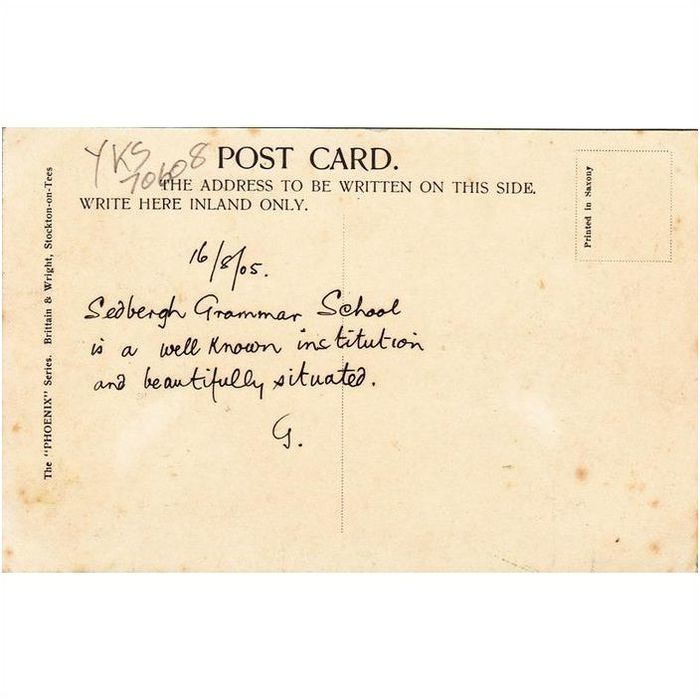 YKS
70608
POST CARD.
THE ADDRESS TO BE WRITTEN ON THIS SIDE.
WRITE HERE INLAND ONLY.
Printed in Saxony
The "PHOENIX" Series. Brittain & Wright, Stockton-on-Tees
16/8/05.
Sedbergh Grammar School
is a well Known institution
and beautifully situated.
G.